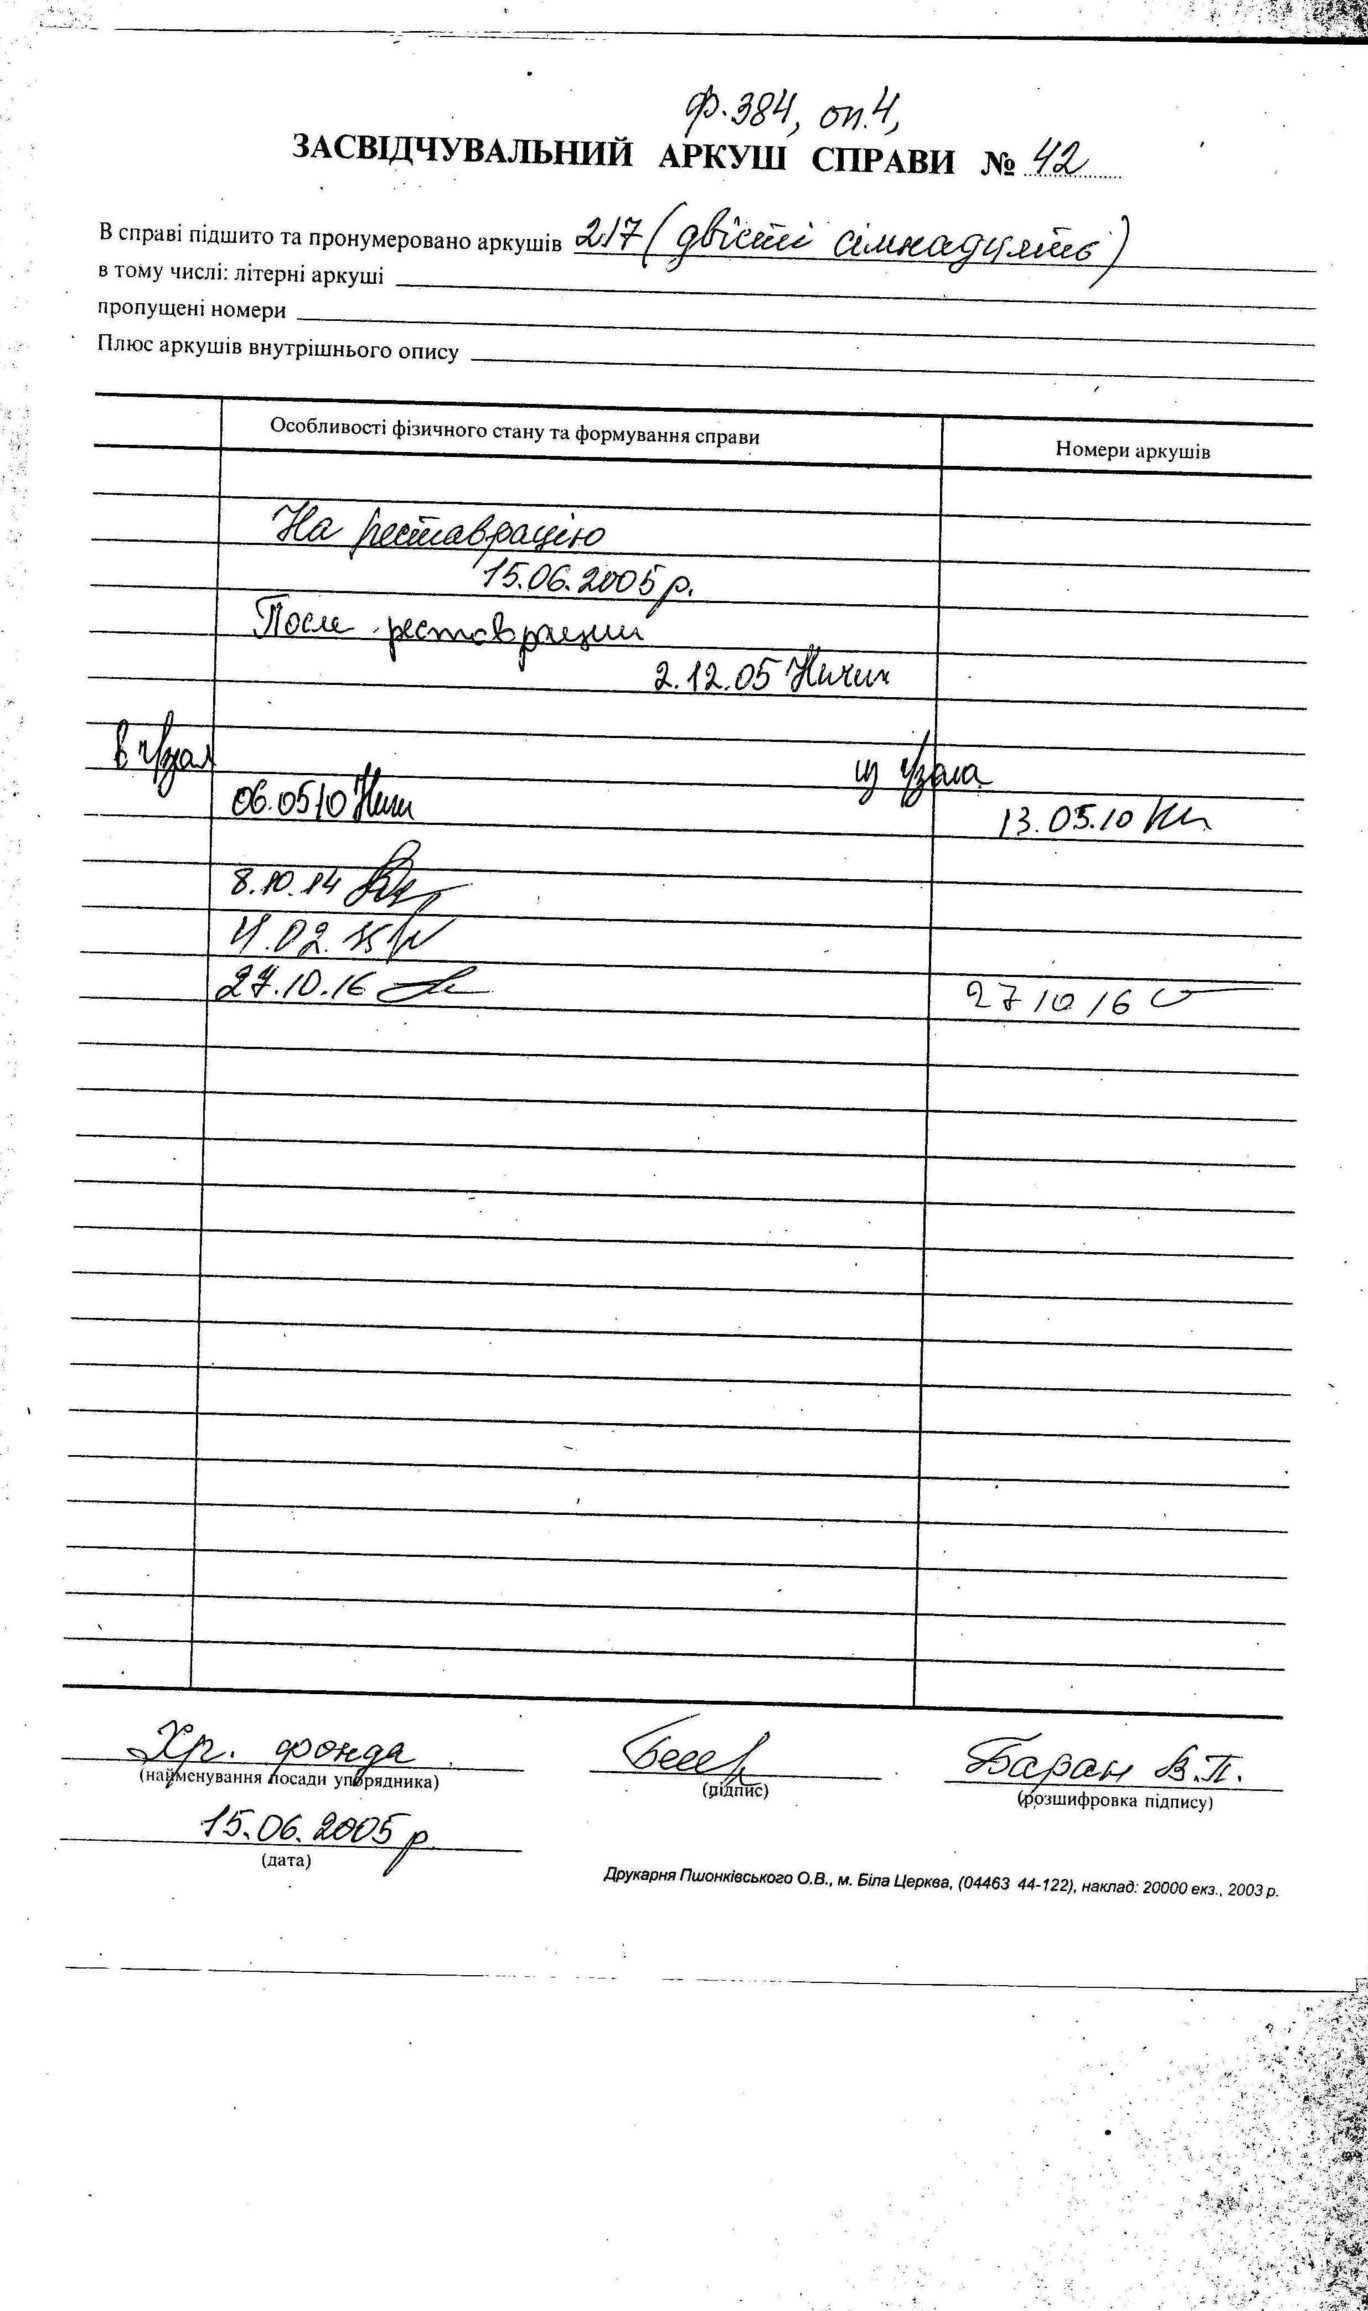 ф.384, оп.4,
ЗАСВІДЧУВАЛЬНИЙ АРКУШ СПРАВИ № 42
В справі підшито та пронумеровано аркушів 217 (двісті сімнадцять)
в тому числі: літерні аркуші
пропущені номери
Плюс аркушів внутрішнього опису
Особливості фізичного стану та формування справи
Номери аркушів
На реставрацію
15.06.2005 р.
После реставрации
2.12.05
в ч/зал
из ч/зала
06.05.10
13.05.10
8.10.14
27.10.16
27 10 16
Хр. фонда
(найменування посади упорядника)
(підпис)
Баран В.П.
(розшифровка підпису)
15.06.2005 р.
(дата)
Друкарня Пшонківського О.В., м. Біла Церква, (04463 44-122), наклад: 20000 екз., 2003 р.